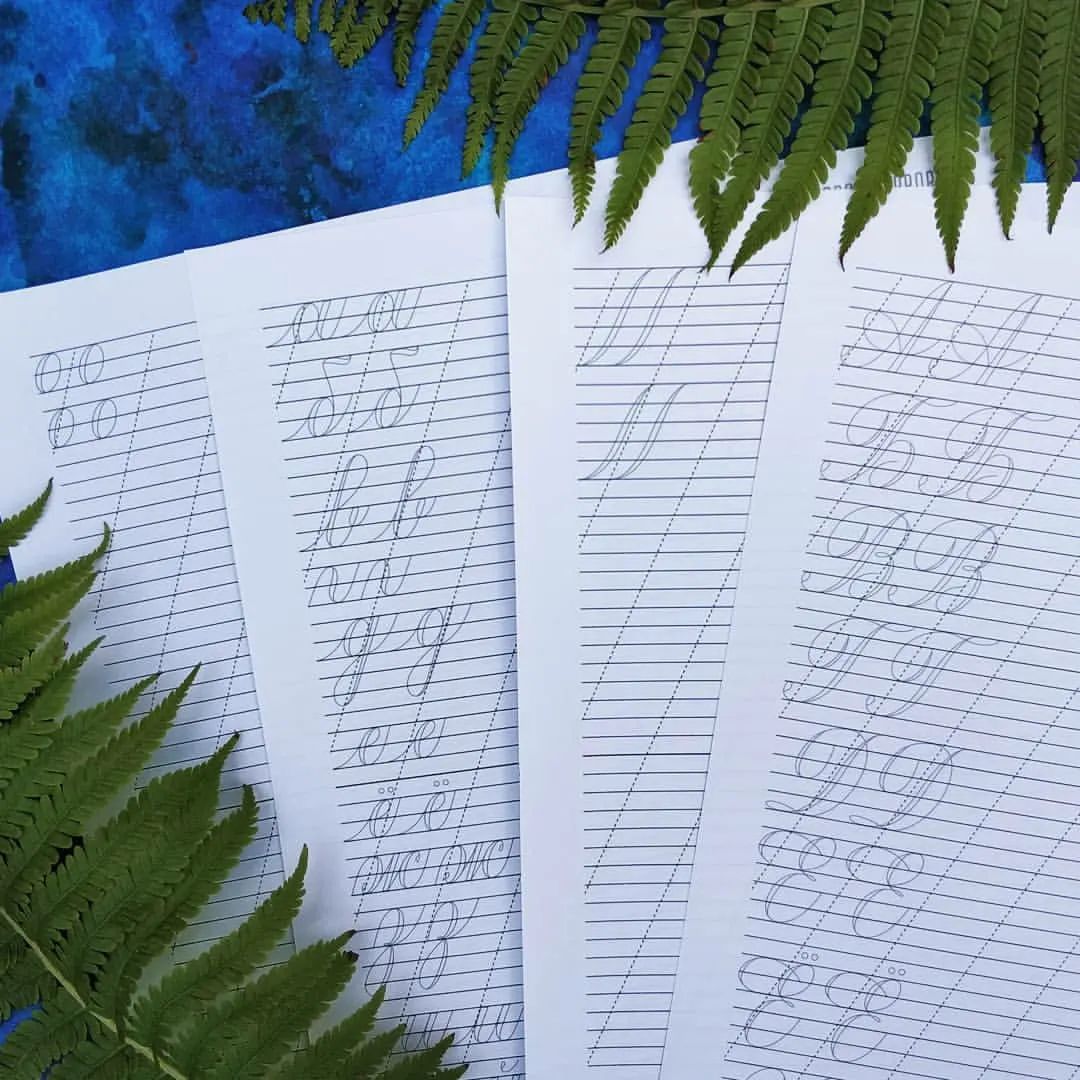 о о
о о
а а
б б
в в
г г
д д
е е
ё ё
ж ж
з з
и и
А А
Б Б
В В
Г Г
Д Д
Е Е
Ё Ё